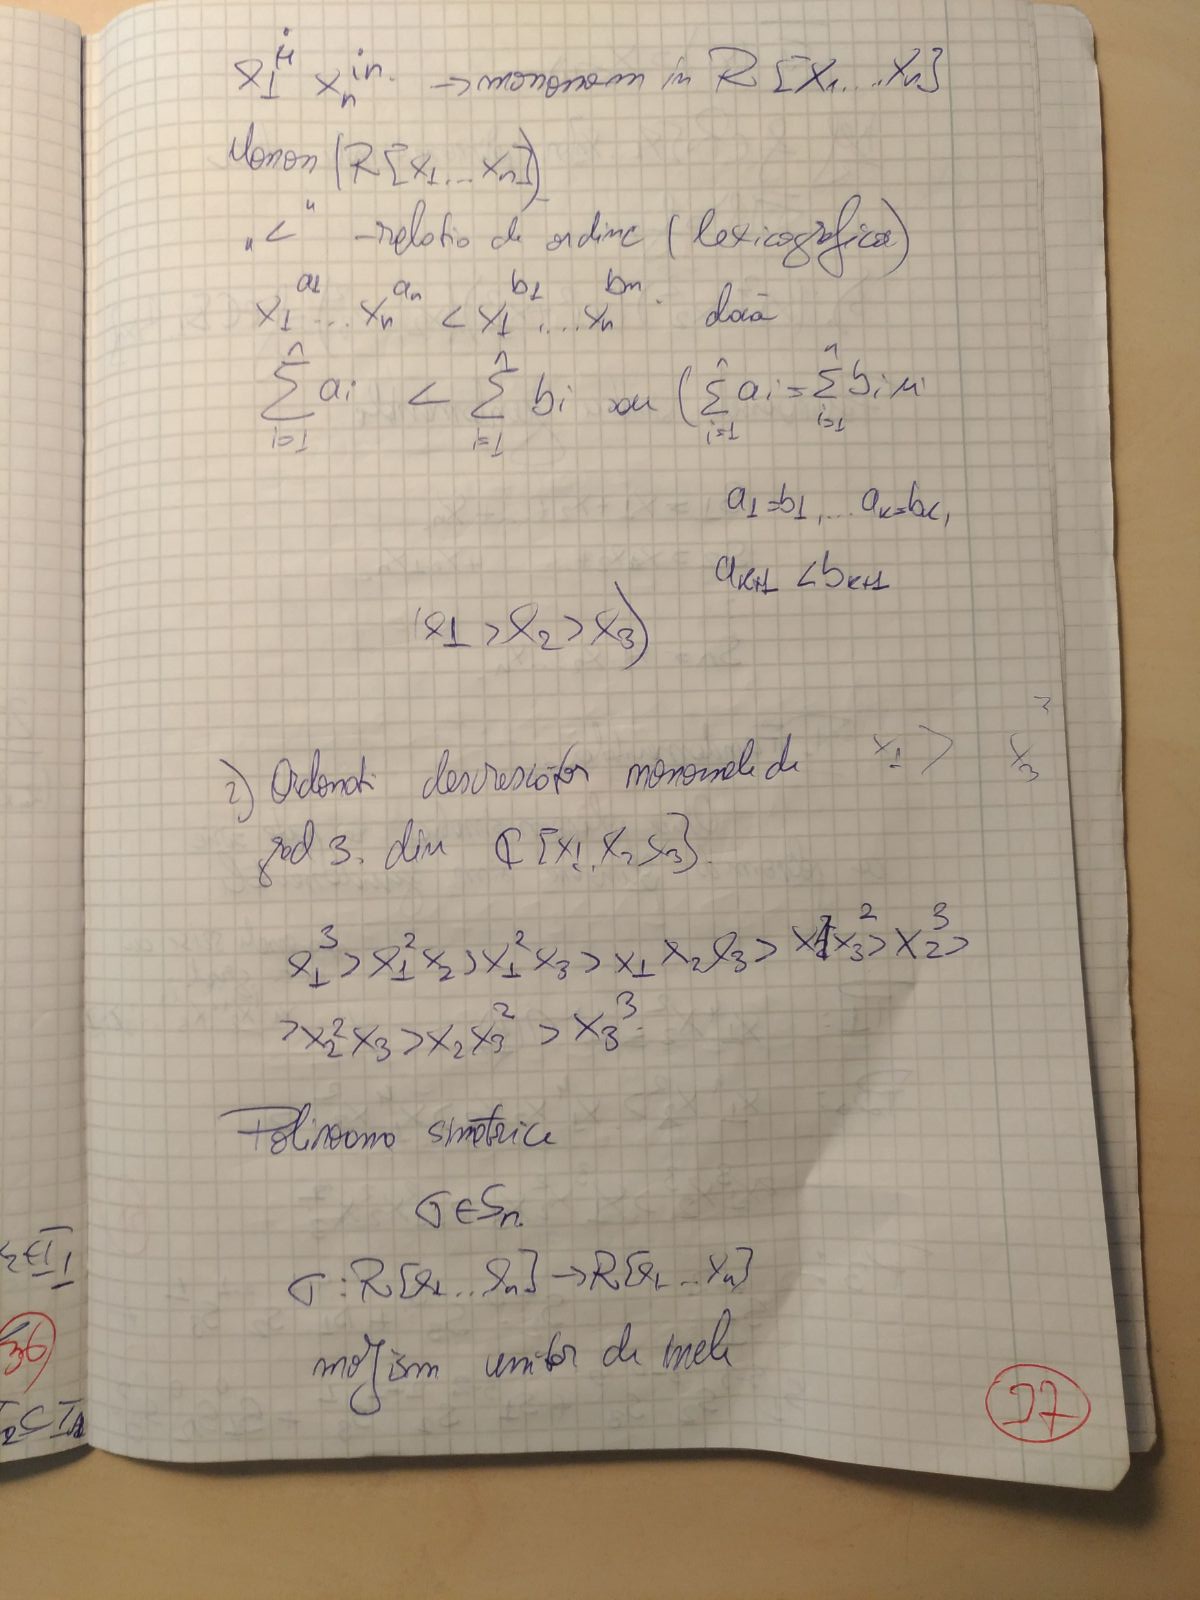 X₁^i₁ Xₙ^iₙ. → monononom in R[X₁...Xₙ]
Monon (R[X₁...Xₙ])
„<" - relatio de ordine (lexicografica)
X₁^a₁ ... Xₙ^aₙ < X₁^b₁ ... Xₙ^bₙ. dacă
∑_{i=1}^n aᵢ < ∑_{i=1}^n bᵢ sau (∑_{i=1}^n aᵢ = ∑_{i=1}^n bᵢ și
a₁=b₁, ... aₖ=bₖ,
aₖ₊₁ < bₖ₊₁
(X₁ > X₂ > X₃)
2) Ordonati descrescător monomele de X₁ > X₃³
grad 3. din ℂ[X₁, X₂, X₃].
X₁³ > X₁²X₂ > X₁²X₃ > X₁X₂X₃ > X₁X₃² > X₂³ >
> X₂²X₃ > X₂X₃² > X₃³.
Polinoame simetrice
σ ∈ Sₙ.
σ : R[X₁...Xₙ] → R[X₁...Xₙ]
morfism unitar de inele
37
36